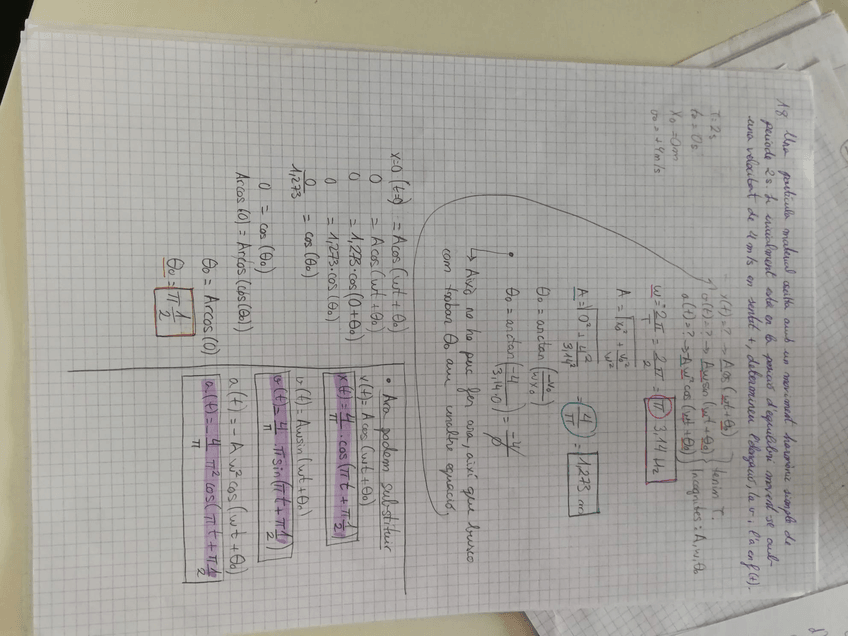 18 Una partícula material oscil·la amb un moviment harmònic simple de
període 2s. Si inicialment està en la posició d'equilibri movent-se amb
una velocitat de 4 m/s en sentit +, determineu l'elongació, la v i l'a en f(t).
T=2s
t₀=0s
x₀=0m
v₀=+4m/s
x(t)=? → Acos(wt+θ₀)
v(t)=? → Awsin(wt+θ₀)
a(t)=? → Aw²cos(wt+θ₀)
Tenim T.
Incògnites: A, w, θ₀
w = 2π/T = 2π/2 = π 3,14 Hz
A = √(x₀² + v₀²/w²)
A = √(0² + 4²/3,14²) = 4/π = 1,273 m
θ₀ = arctan(-v₀/(w)x₀)
θ₀ = arctan(-4/3,14·0) = -4/0
↳ Això no ho puc fer ara, així que busco
com trobar θ₀ amb una altre equació,
x=0 (t=0) = Acos(wt+θ₀)
0 = Acos(wt+θ₀)
0 = 1,273·cos(0+θ₀)
0 = 1,273·cos(θ₀)
0/1,273 = cos(θ₀)
0 = cos(θ₀)
Arcos(0) = Arcos(cos(θ₀))
θ₀ = Arcos(0)
θ₀ = π 1/2
• Ara podem substituir
x(t) = Acos(wt+θ₀)
x(t) = 4/π · cos(πt + π 1/2)
v(t) = Awsin(wt+θ₀)
v(t) = 4/π π sin(πt + π 1/2)
a(t) = -Aw²cos(wt+θ₀)
a(t) = -4/π π² cos(πt + π 1/2)